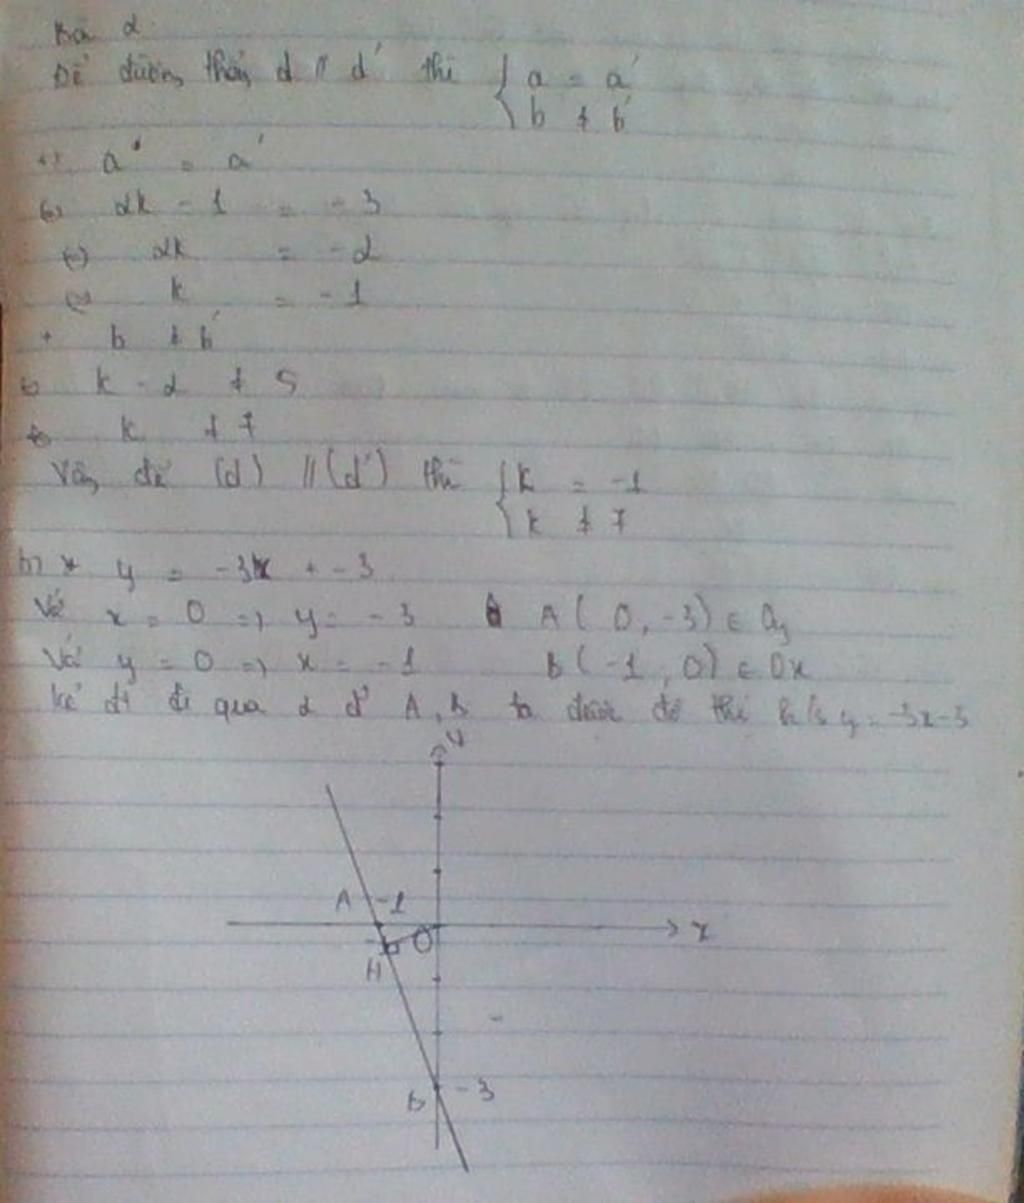 Bài 2
Để đường thẳng d // d' thì { a = a'
b ≠ b'
+) a = a'
(=) 2k - 1 = - 3
(=) 2k = - 2
(=) k = - 1
+ b ≠ b'
(=) k - 2 ≠ 5
(=) k ≠ 7
Vậy để (d) // (d') thì { k = -1
k ≠ 7
b) * y = -3x + -3
Với x = 0 => y = - 3 A ( 0 , -3) ∈ Oy
Với y = 0 => x = - 1 B ( -1 , 0) ∈ Ox
Kẻ đt đi qua 2 đ' A, B ta được đồ thị h/s y = -3x-3
y
A -1
O x
H
B -3